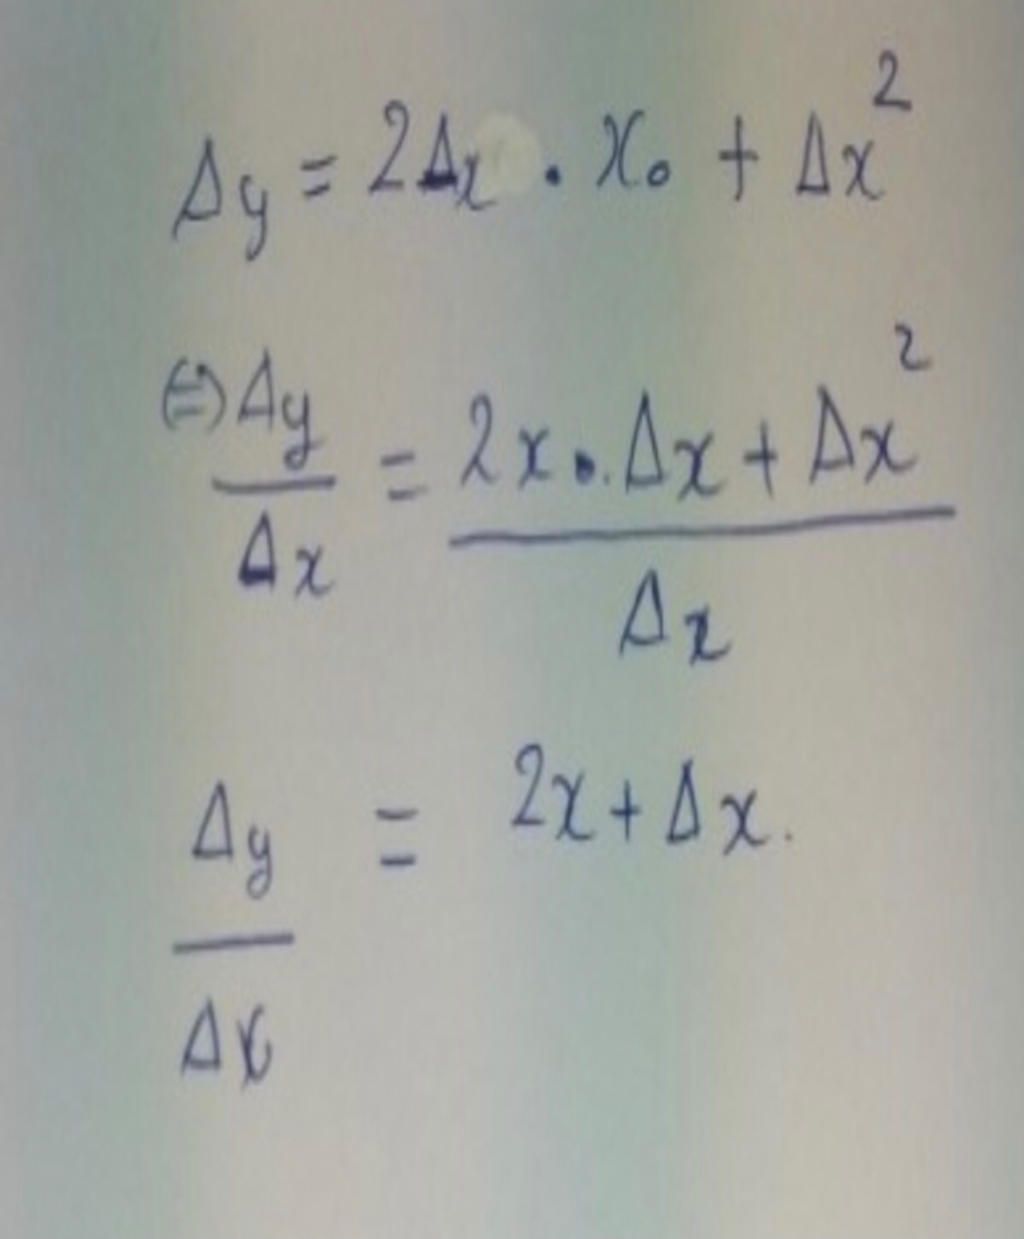 Δy = 2Δx . x₀ + Δx²
⇔ Δy/Δx = (2x₀.Δx + Δx²)/Δx
Δy/Δx = 2x + Δx.